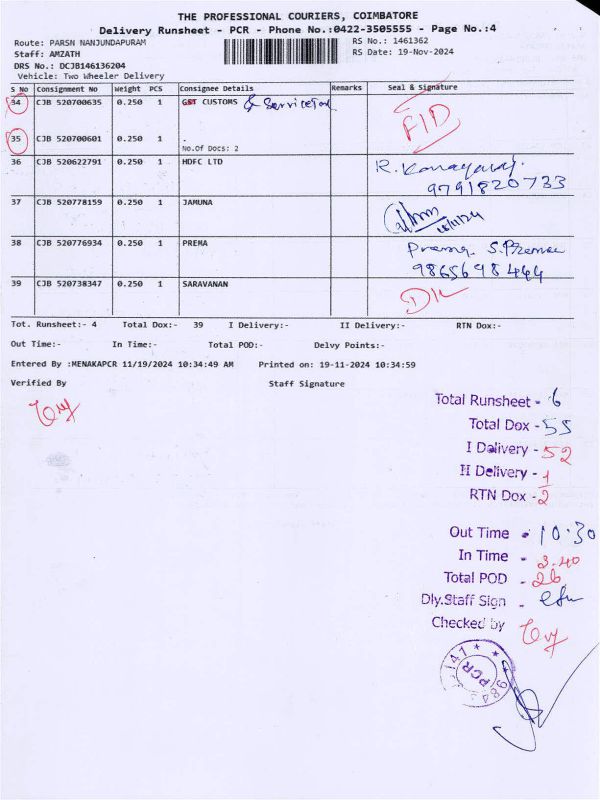 THE PROFESSIONAL COURIERS, COIMBATORE
Delivery Runsheet - PCR - Phone No.:0422-3505555 - Page No.:4
Route: PARSN NANJUNDAPURAM
RS No.: 1461362
Staff: AMZATH
RS Date: 19-Nov-2024
DRS No.: DCJB146136204
Vehicle: Two Wheeler Delivery
S No Consignment No Weight PCS Consignee Details Remarks Seal & Signature
34 CJB 520700635 0.250 1 GST CUSTOMS & Service Tax
FID
35 CJB 520700601 0.250 1 .
No.Of Docs: 2
36 CJB 520622791 0.250 1 HDFC LTD R. Kanagaraj.
9791820733
37 CJB 520778159 0.250 1 JAMUNA
38 CJB 520776934 0.250 1 PREMA Prema. S.Prema
9865698444
39 CJB 520738347 0.250 1 SARAVANAN
Tot. Runsheet:- 4 Total Dox:- 39 I Delivery:- II Delivery:- RTN Dox:-
Out Time:- In Time:- Total POD:- Delvy Points:-
Entered By :MENAKAPCR 11/19/2024 10:34:49 AM Printed on: 19-11-2024 10:34:59
Verified By Staff Signature
Total Runsheet - 6
Total Dox - 55
I Dalivery - 52
II Delivery - 1
RTN Dox - 2
Out Time - 10.30
In Time - 3.40
Total POD - 26
Dly.Staff Sign -
Checked by
PCR